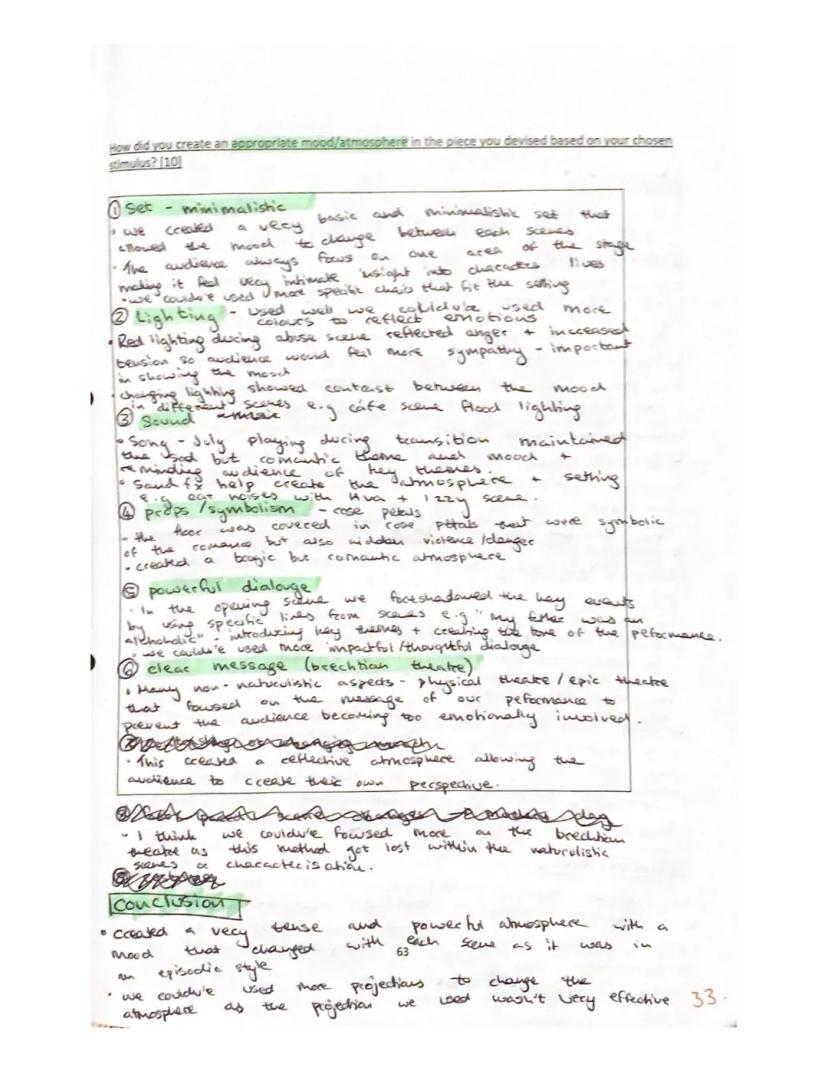 How did you create an appropriate mood/atmosphere in the piece you devised based on your chosen
stimulus? [10]
① Set - minimalistic
• we created a very basic and minimalistic set that
allowed the mood to change between each scenes
• The audience always focus on one area of the stage
making it feel very intimate insight into characters lives
• we could've used more specific chairs that fit the setting
② Lighting - used well we could've used more
colours to reflect emotions
• Red lighting during abuse scene reflected anger + increased
tension so audience would feel more sympathy - important
in showing the mood
• changing lighting showed contrast between the mood
in different scenes e.g cafe scene flood lighting
③ Sound
• Song - July playing during transition maintained
the sad but romantic theme and mood +
reminding audience of key themes.
• Sound fx help create the atmosphere + setting
e.g noises with + Izzy scene.
④ props/symbolism - rose petals
- the floor was covered in rose petals that were symbolic
of the romance but also hidden violence/danger
• created a tragic but romantic atmosphere
⑤ powerful dialouge
• In the opening scene we foreshadowed the key events
by using specific lines from scenes e.g "my father was an
alchoholic" - introducing key themes + creating the tone of the peformance.
• we could've used more impactful/thoughtful dialouge
⑥ clear message (brechtian theatre)
• Many non-naturalistic aspects - physical theatre/epic theatre
that focused on the message of our peformance to
prevent the audience becoming too emotionally involved.
• This created a reflective atmosphere allowing the
audience to create their own perspective.
- I think we could've focused more on the brechtian
theatre as this method got lost within the naturalistic
scenes or characterisation.
Conclusion
• created a very tense and powerful atmosphere with a
mood that changed with each scene as it was in
63
an episodic style
• we could've used more projections to change the
atmosphere as the projection we used wasn't very effective 33.